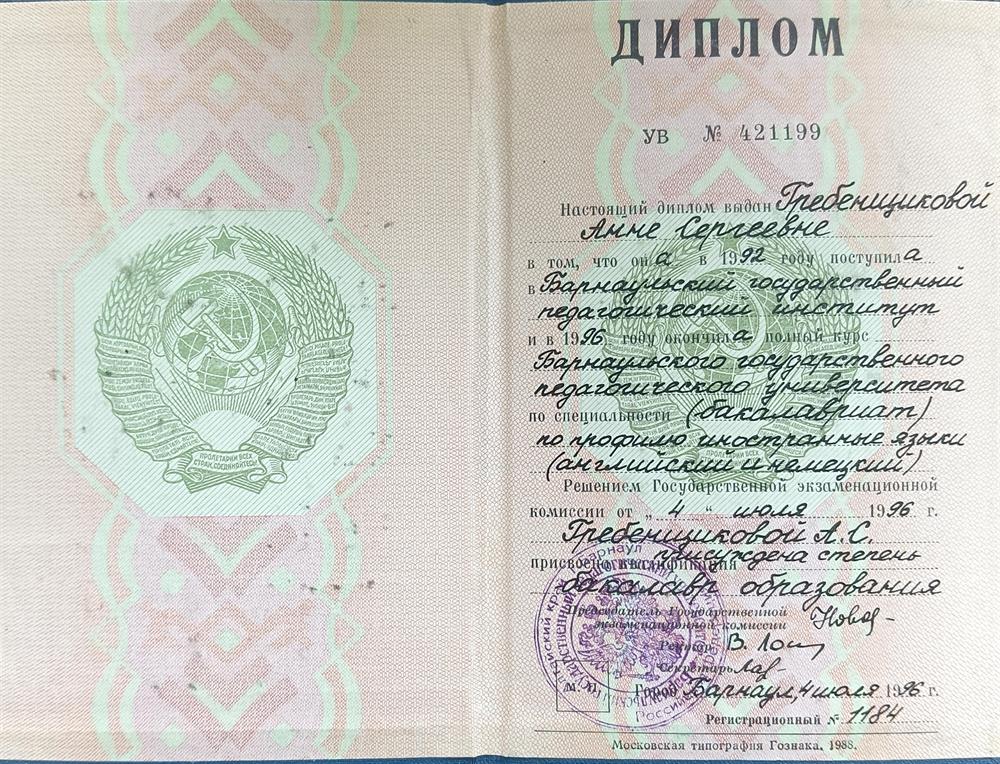 ПРОЛЕТАРИИ ВСЕХ
СТРАН, СОЕДИНЯЙТЕСЬ!
ДИПЛОМ
УВ № 421199
Настоящий диплом выдан Гребенщиковой
Анне Сергеевне
в том, что она в 1992 году поступила
в Барнаульский государственный
педагогический институт
и в 1996 году окончила полный курс
Барнаульского государственного
педагогического университета
по специальности (бакалавриат)
по профилю иностранные языки
(английский и немецкий)
Решением Государственной экзаменационной
комиссии от „ 4 “ июля 1996 г.
Гребенщиковой А.С.
присвоена квалификация присуждена степень
бакалавр образования
Председатель Государственной
экзаменационной комиссии
Ректор
Секретарь
М. П. Город Барнаул, 4 июля 1996 г.
Регистрационный № 1184
Московская типография Гознака. 1988.